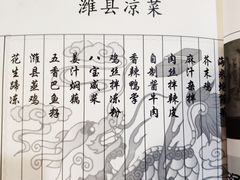 潍县凉菜
芥末
麻汁杂拌
肉丝拌辣皮
自制酱牛肉
香辣鸭掌
鸡丝拌冻粉
八宝咸菜
姜汁焖藕
五香巴鱼
潍县鸡
花生蹄冻